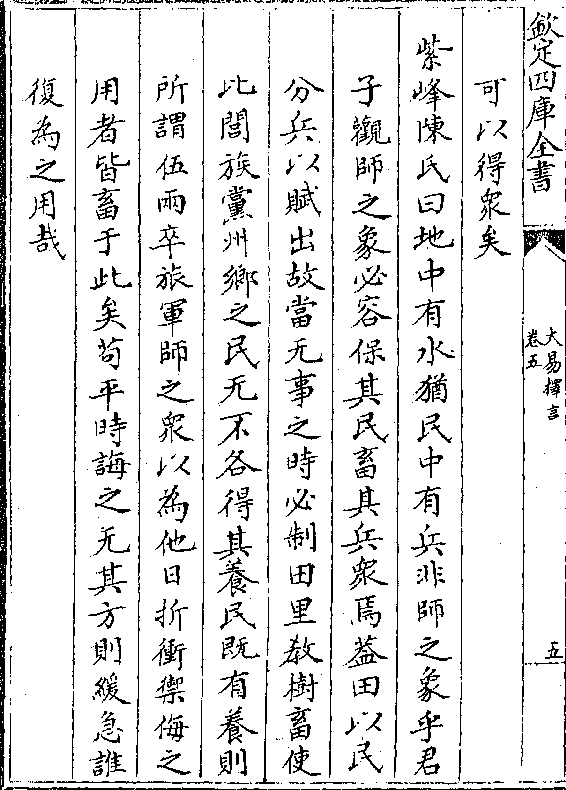 欽定四庫全書
大易擇言
卷五
五
可以得衆矣
紫峰陳氏曰地中有水猶民中有兵非師之象乎君
子觀師之象必容保其民畜其兵衆焉葢田以民
分兵以賦出故當无事之時必制田里教樹畜使
比閭族黨州鄉之民无不各得其養民既有養則
所謂伍兩卒旅軍師之衆以為他日折衝禦侮之
用者皆畜于此矣苟平時誨之无其方則緩急誰
復為之用哉